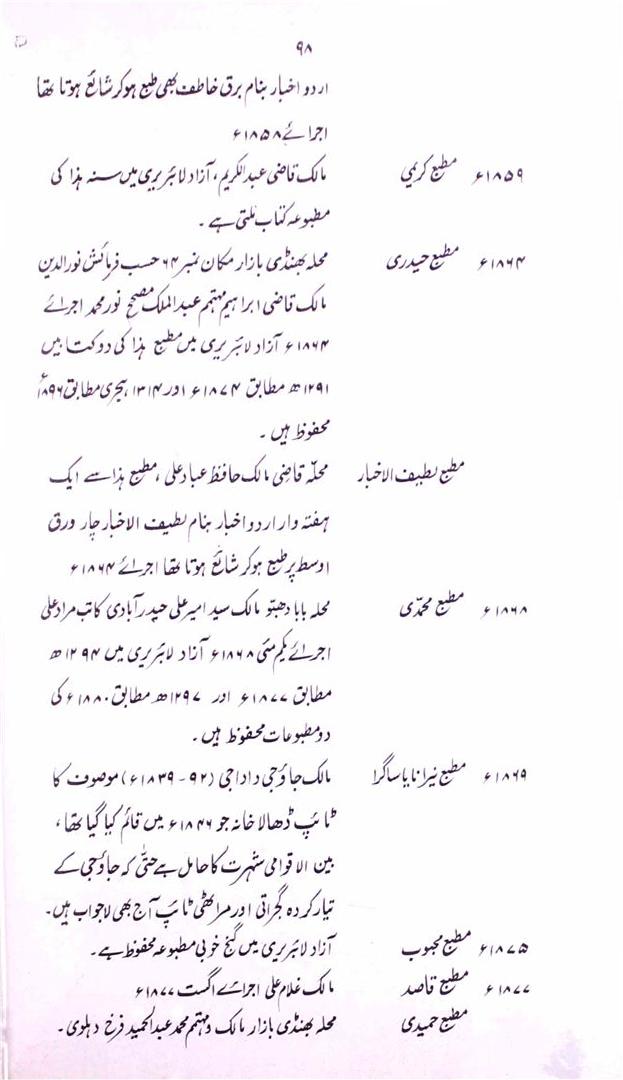 ۹۸
اردو اخبار بنام برق خاطف بھی طبع ہو کر شائع ہوتا تھا
اجرائے ۱۸۵۸ء
۱۸۵۹ء مطبع کریمی مالک قاضی عبدالکریم، آزاد لائبریری میں سنہ ہذا کی
مطبوعہ کتاب ملتی ہے۔
۱۸۶۴ء مطبع حیدری محلہ بھنڈی بازار مکان نمبر ۶۴ حسب فرمائش نورالدین
مالک قاضی ابراہیم مہتمم عبدالملک مصحح نور محمد اجرائے
۱۸۶۴ء آزاد لائبریری میں مطبع ہذا کی دو کتابیں
۱۲۹۱ھ مطابق ۱۸۷۴ء اور ۱۳۱۴ ہجری مطابق ۱۸۹۶ء
محفوظ ہیں۔
مطبع لطیف الاخبار محلّہ قاضی مالک حافظ عباد علی، مطبع ہذا سے ایک
ہفتہ وار اردو اخبار بنام لطیف الاخبار چار ورق
اوسط پر طبع ہو کر شائع ہوتا تھا اجرائے ۱۸۶۴ء
۱۸۶۸ء مطبع محمّدی محلہ بابا دھبتو مالک سید امیر علی حیدرآبادی کاتب مراد علی
اجرائے یکم مئی ۱۸۶۸ء آزاد لائبریری میں ۱۲۹۴ھ
مطابق ۱۸۷۷ء اور ۱۲۹۷ھ مطابق ۱۸۸۰ء کی
دو مطبوعات محفوظ ہیں۔
۱۸۶۹ء مطبع نیرانایا ساگرا مالک جاؤجی داداجی (۹۲-۱۸۳۹ء) موصوف کا
ٹائپ ڈھالا خانہ جو ۱۸۴۶ء میں قائم کیا گیا تھا،
بین الاقوامی شہرت کا حامل ہے حتیٰ کہ جاؤجی کے
تیار کردہ گجراتی اور مراٹھی ٹائپ آج بھی لاجواب ہیں۔
۱۸۷۵ء مطبع محبوب آزاد لائبریری میں گنج خوبی مطبوعہ محفوظ ہے۔
۱۸۷۷ء مطبع قاصد مالک غلام علی اجرائے اگست ۱۸۷۷ء
مطبع حمیدی محلہ بھنڈی بازار مالک و مہتمم محمد عبدالحمید فرخ دہلوی۔